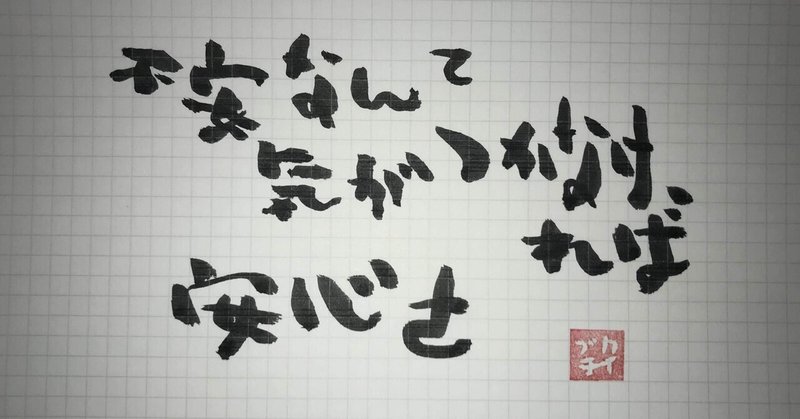 不安なんて
気がつかなけ
れば
安心さ
クイ
ブチ